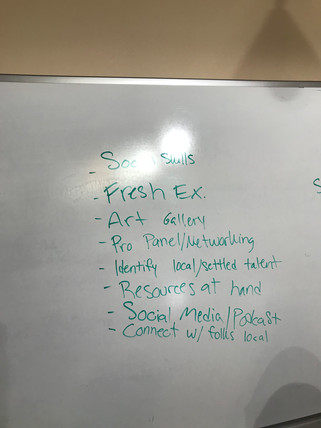 - Social Skills
- Fresh Ex.
- Art Gallery
- Pro Panel/Networking
- Identify local/settled talent
- Resources at hand
- Social Media/Podcast
- Connect w/ folks local
S